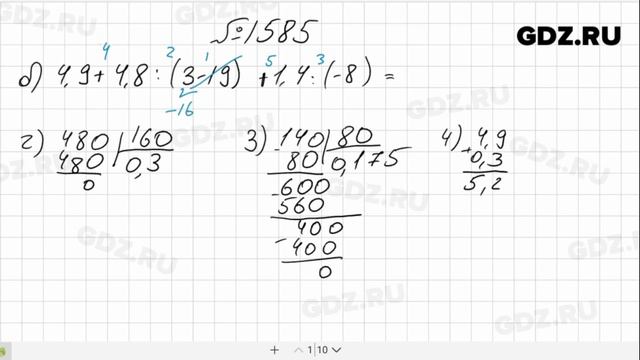 №1585
GDZ.RU
4 2 1 5 3
б) 4,9 + 4,8 : (3-19) + 1,4 : (-8) =
-16
2) 480 160 3) 140 80 4) 4,9
480 0,3 80 0,175 + 0,3
0 - 600 5,2
560
400
- 400
0
GDZ.RU
GDZ.RU
GDZ.RU
GDZ.RU
GDZ.RU
GDZ.RU
+ 1 | 10